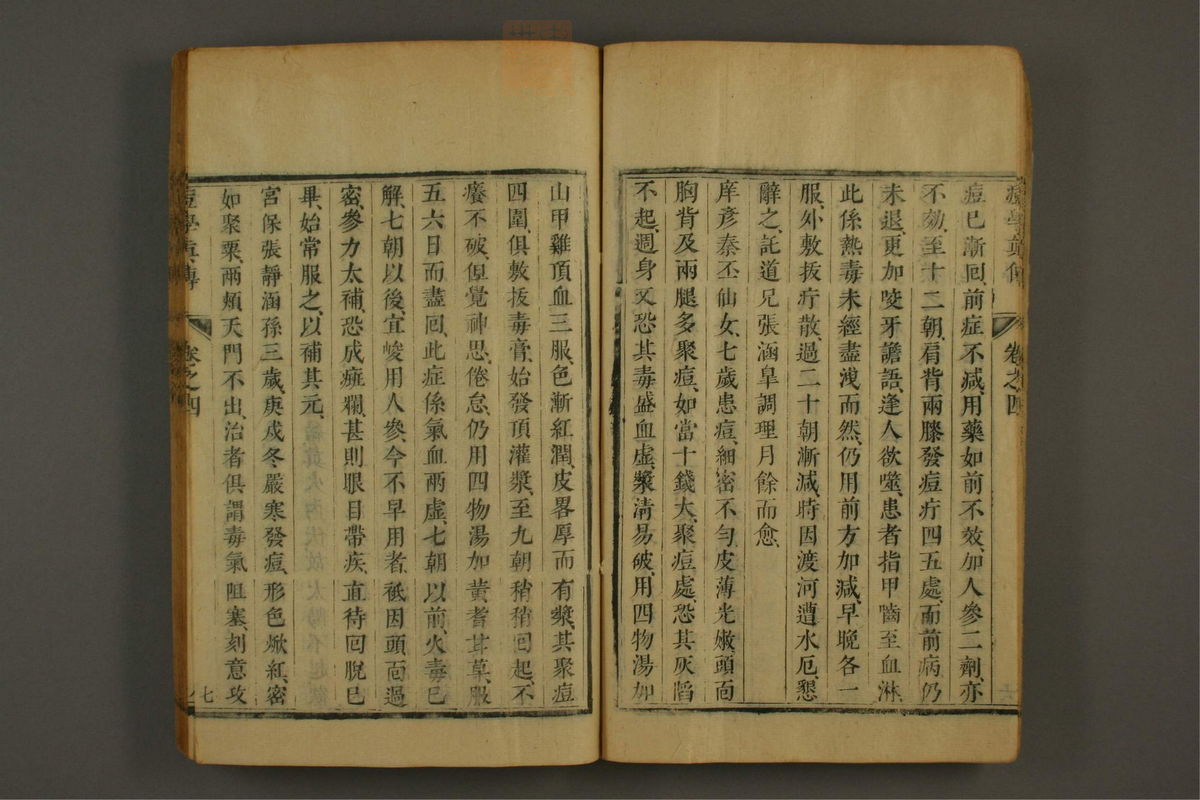 痘學真傳
卷之四
痘已漸囘、前症不減、用藥如前不效、加人參二劑、亦
不効、至十二朝、肩背兩䐴發痘疔四五處、而前病仍
未退、更加咬牙譫語、逢人欲噬、患者指甲嚙至血淋、
此係熱毒未經盡洩而然、仍用前方加減、早晚各一
服、外敷拔疔散、過二十朝漸減、時因渡河遭水厄、懇
辭之、託道兄張涵臯調理月餘而愈、
庠彥秦丕仙女、七歲患痘、細密不勻、皮薄光嫩、頭面
胸背及兩腿多聚痘、如當十錢大、聚痘處、恐其灰䧟
不起、週身又恐其毒盛血虛、漿清易破、用四物湯加
山甲雞頂血三服、色漸紅潤、皮畧厚而有漿、其聚痘
四圍、俱敷拔毒膏、始發頂灌漿、至九朝稍稍囘起、不
癢不破、但覺神思倦怠、仍用四物湯加黄耆甘草、服
五六日而盡囘、此症係氣血兩虛、七朝以前、火毒已
解、七朝以後、宜峻用人參、今不早用者、祗因頭面過
密、參力太補、恐成癰爛、甚則眼目帶疾、直待囘脫已
畢、始常服之、以補其元、
宮保張靜涵孫三歲、庚戌冬嚴寒發痘、形色焮紅、密
如聚粟、兩頰天門不出、治者俱謂毒氣阻塞、刻意攻
痘學真傳
卷之四
七